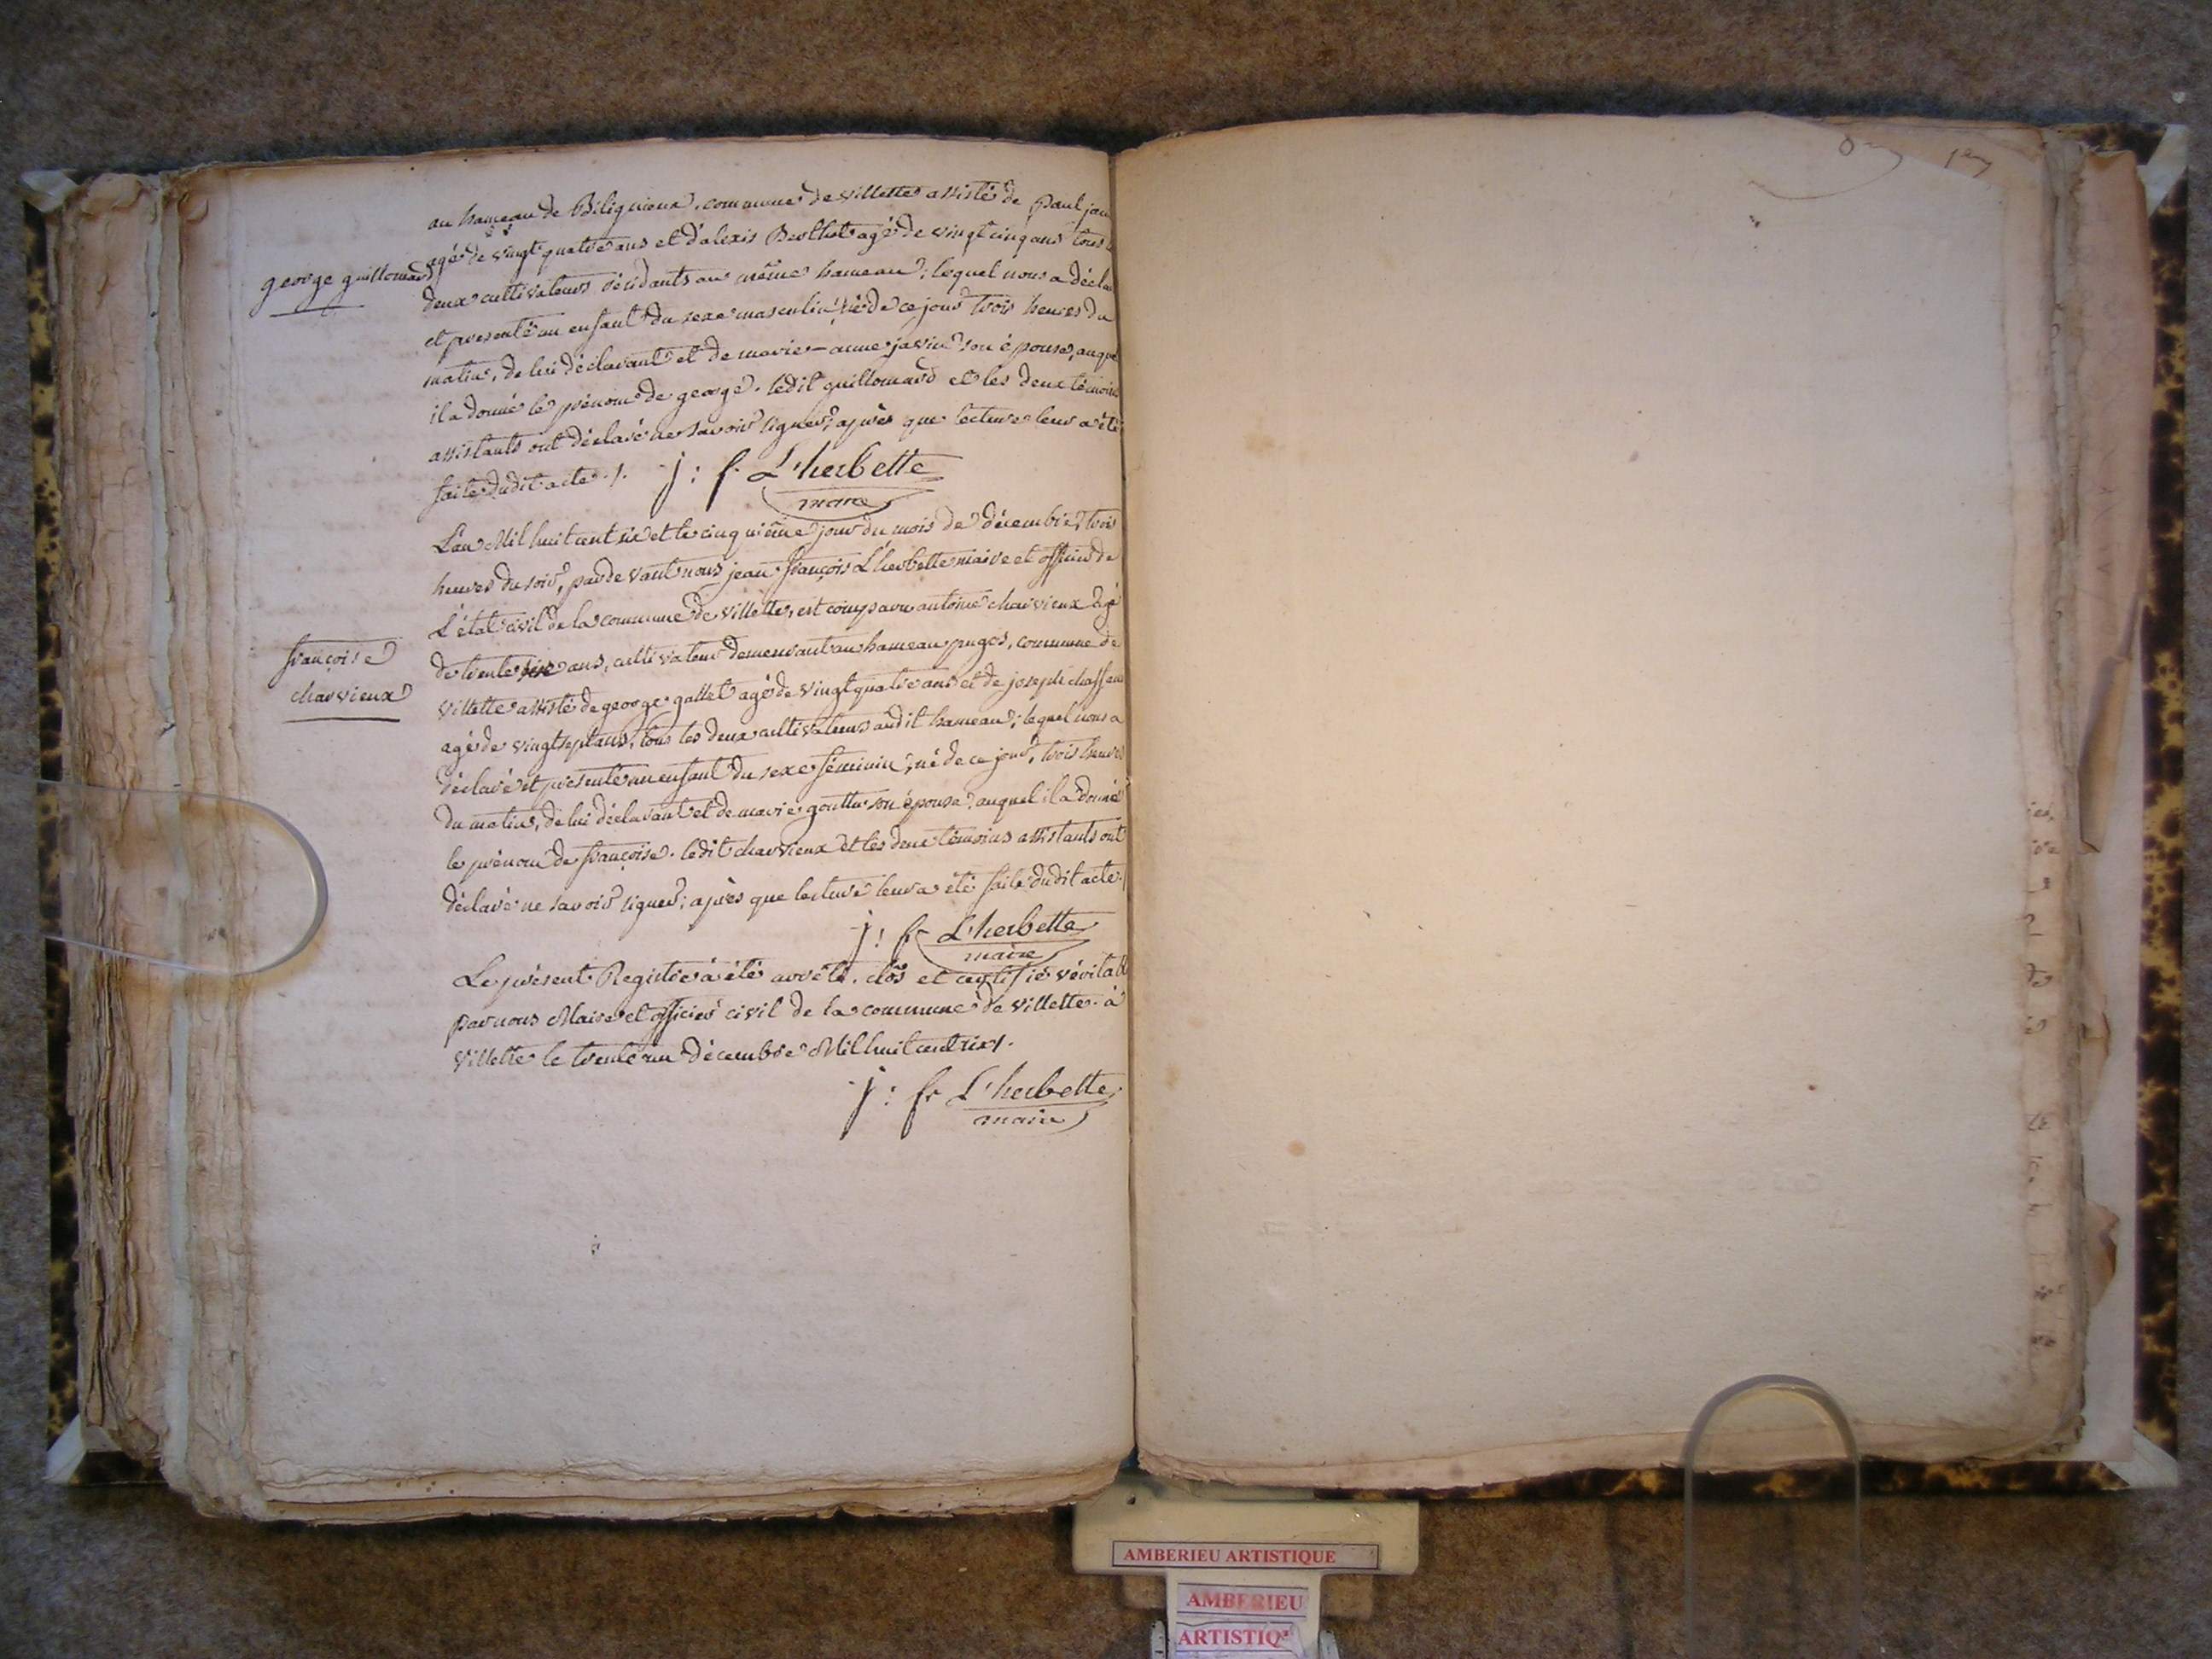 au hameau de Biligneux, commune de villette assisté de paul
george guillomard
agé de vingt quatre ans et d'alexis Berthet agé de vingt cinq ans tous
deux cultivateurs résidants au même hameau; lequel nous a décla
et presenté un enfant du sexe masculin, né de ce jour trois heures du
matin, de lui déclarant et de marie-anne javin son épouse, auquel
il a donné le prénom de george. ledit guillomard et les deux témoins
assistants ont déclaré ne savoir signer; après que lecture leur a été
faite dudit acte ./. j: f. L'herbette
maire
L'an Mil huit cent six et le cinquième jour du mois de décembre, trois
heures du soir, pardevant nous jean françois L'herbette maire et officier de
L'état civil de la commune de villette, est comparu antoine charvieux agé
françoise
charvieux
de trente six ans, cultivateur demeurant au hameau puges, commune de
villette assisté de george gallet agé de vingt quatre ans et de joseph
agé de vingt sept ans, tous les deux cultivateurs audit hameau; lequel nous a
déclaré et presenté un enfant du sexe féminin, né de ce jour, trois heures
du matin, de lui déclarant et de marie son épouse, auquel il a donné
le prénom de françoise. ledit charvieux et les deux témoins assistants ont
déclaré ne savoir signer; après que lecture leur a été faite dudit acte./
j: fr L'herbette
maire
Le présent Registre à été arrêté, clos et certifié véritab
par nous Maire et officier civil de la commune de villette. à
villette le trente un décembre Mil huit cent six /.
j: fr L'herbette
maire
AMBERIEU ARTISTIQUE
AMBERIEU
ARTISTIQ